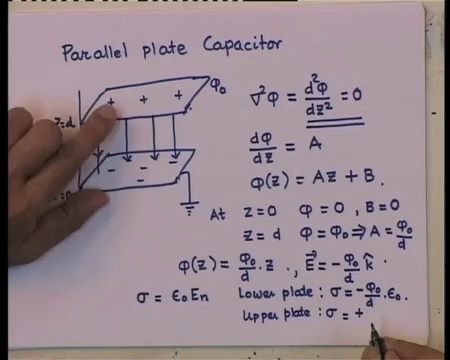 Parallel plate Capacitor
+ + +
φ₀
z=d
- -
-
=0
∇²φ = d²φ/dz² = 0
dφ/dz = A
φ(z) = Az + B.
At z=0 φ=0, B=0
z=d φ=φ₀ ⇒ A = φ₀/d
φ(z) = φ₀/d . z , E⃗ = -φ₀/d k̂
σ = ε₀En Lower plate : σ = -φ₀/d . ε₀.
Upper plate : σ = +